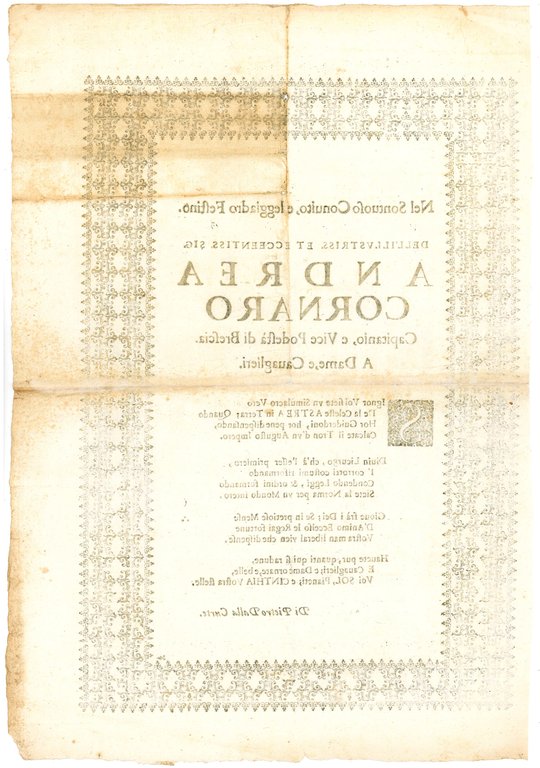 Nel Sontuoſo Conuito, e leggiadro Feſtino.
DELL'ILLVSTRISS. ET ECCENTISS. SIG.
ANDREA
CORNARO
Capitanio, e Vice Podeſtà di Breſcia.
A Dame, e Cauaglieri.
SIgnor Voi ſiete vn Simulacro Vero
De la Celeſte ASTREA in Terra: Quando
Hor Guiderdoni, hor pene diſpenſando,
Calcate il Tron d'vn Auguſto Impero.
Diuin Licurgo, ch'à l'eſſer primiero,
I corrotti coſtumi riformando
Condendo Leggi, & ordini formando
Siete la Norma per vn Mondo intero.
Gioue frà i Dei; Se in pretioſe Menſe
D'Animo Eccelſo le Regai fortune
Voſtra man liberal vien che diſpenſe,
Hauete pur, quanti quì ſi radune,
E Cauaglieri; e Dame ornate, e belle,
Voi SOL, Pianeti; e CINTHIA voſtra ſtelle.
Di Pietro Dalla Corte.